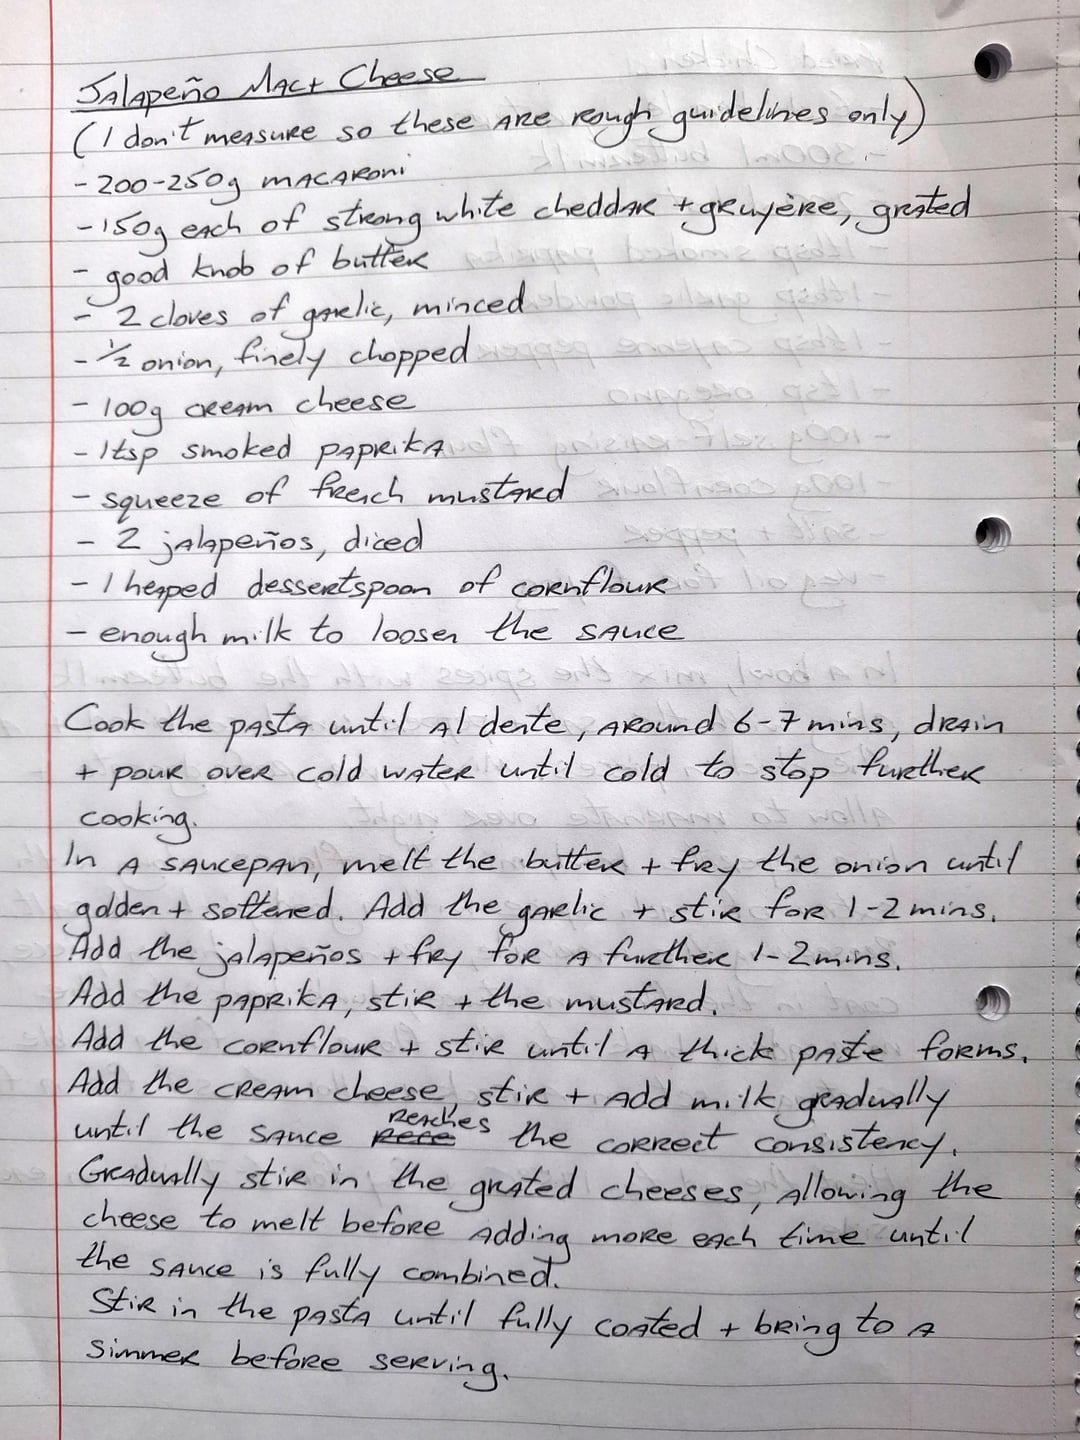 Jalapeño Mac + Cheese
(I don't measure so these are rough guidelines only)
- 200-250g macaroni
- 150g each of strong white cheddar + gruyère, grated
- good knob of butter
- 2 cloves of garlic, minced
- ½ onion, finely chopped
- 100g cream cheese
- 1tsp smoked paprika
- squeeze of french mustard
- 2 jalapeños, diced
- 1 heaped dessertspoon of cornflour
- enough milk to loosen the sauce
Cook the pasta until al dente, around 6-7 mins, drain
+ pour over cold water until cold to stop further
cooking.
In a saucepan, melt the butter + fry the onion until
golden + softened. Add the garlic + stir for 1-2 mins.
Add the jalapeños + fry for a further 1-2 mins.
Add the paprika, stir + the mustard.
Add the cornflour + stir until a thick paste forms.
Add the cream cheese, stir + add milk gradually
until the sauce reaches the correct consistency.
Gradually stir in the grated cheeses, allowing the
cheese to melt before adding more each time until
the sauce is fully combined.
Stir in the pasta until fully coated + bring to a
simmer before serving.